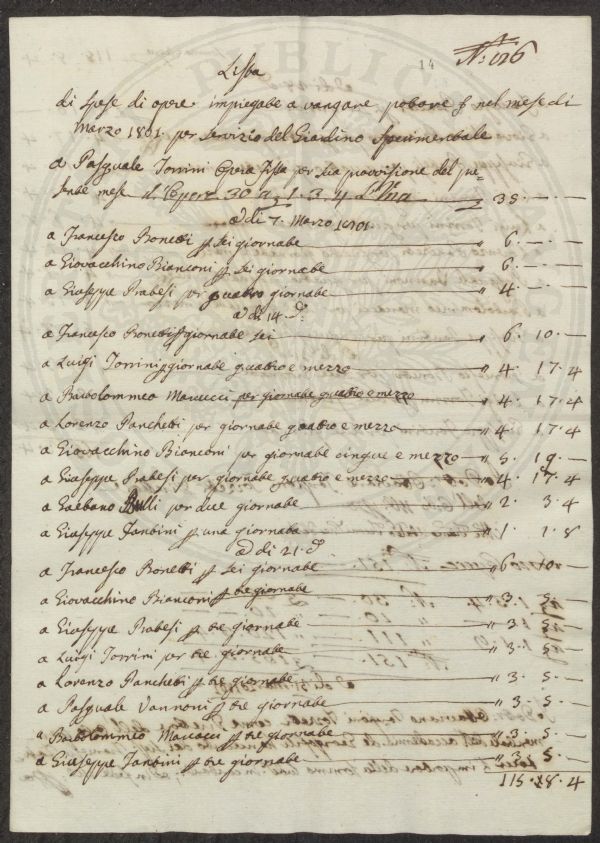 14
N.° 126
Lista
di Spese di opere impiegate a vangare, potare &. nel mese di
Marzo 1801. per servizio del Giardino Sperimentale
a Pasquale Torrini Opera fissa per sua provvisione del pre-
sente mese d'Opere 30 a 1. 3. 4 " 35. — . —
a di 7. Marzo 1801.
a Francesco Bonetti p sei giornate " 6. — . —
a Giovacchino Bianconi p sei giornate " 6. — . —
a Giuseppe Prabesi per quatro giornate " 4. — . —
a di 14. d.°
a Francesco Bonetti p giornate sei 6. 10. —
a Luigi Torrini p giornate quatro e mezzo " 4. 17. 4
a Bartolommeo Macucci per giornate quatro e mezzo " 4. 17. 4
a Lorenzo Panchetti per giornate quatro e mezzo " 4. 17. 4
a Giovacchino Bianconi per giornate cinque e mezzo " 5. 19. —
a Giuseppe Prabesi per giornate quatro e mezzo " 4. 17. 4
a Gaetano Bulli per due giornate " 2. 3. 4
a Giuseppe Tantini p una giornata " 1. 1. 8
a di 21. d.°
a Francesco Bonetti p sei giornate " 6. 10. —
a Giovacchino Bianconi p tre giornate " 3. 5. —
a Giuseppe Prabesi p tre giornate " 3. 5. —
a Luigi Torrini per tre giornate " 3. 5. —
a Lorenzo Panchetti p tre giornate " 3. 5. —
a Pasquale Vannoni p tre giornate " 3. 5. —
a Bartolommeo Macucci p tre giornate " 3. 5. —
a Giuseppe Tantini p tre giornate " 3. 5. —
115. 18. 4